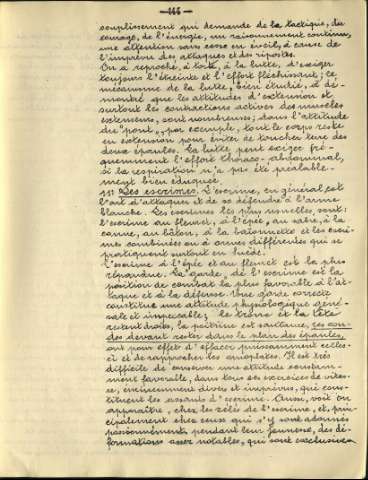 - 166 -
souplissement qui demande de la tactique, du
courage, de l'énergie, un raisonnement continu,
une attention sans cesse en éveil, à cause de
l'imprévu des attaques et des ripostes.
On a reproché, à tort, à la lutte, d'exiger
toujours l'étreinte et l'effort fléchissant; ce
mécanisme de la lutte, bien étudié, a dé-
montré que les attitudes d'extension et
surtout les contractions actives des muscles
extenseurs, sont nombreuses; dans l'attitude
du "pont", par exemple, tout le corps reste
en extension pour éviter de toucher terre des
deux épaules. La lutte peut exiger fré-
quemment l'effort thoraco-abdominal,
si la respiration n'a pas été préalable-
ment bien éduquée.
Les escrimes. L'escrime, en général est
l'art d'attaquer et de se défendre à l'arme
blanche. Les escrimes les plus usuelles, sont:
l'escrime au fleuret, à l'épée, au sabre, à la
canne, au bâton, à la baïonnette et les escri-
mes combinées ou à armes différentes qui se
pratiquent surtout en Suède.
L'escrime à l'épée et au fleuret est la plus
répandue. La garde, de l'escrime est la
position de combat la plus favorable à l'at-
taque et à la défense. Une garde correcte
constitue une attitude physiologique géné-
rale et impeccable; le tronc et la tête
restent droits, la poitrine est saillante, les cou-
des devant rester dans le plan des épaules,
ont pour effet d'effacer puissamment celles-
ci et de rapprocher les omoplates. Il est très
difficile de conserver une attitude constam-
ment favorable, dans tous ces exercices de vites-
se, excessivement divers et imprévus, qui cons-
tituent les assauts d'escrime. Aussi, voit on
apparaître, chez les zélés de l'escrime, et, prin-
cipalement chez ceux qui s'y sont adonnés
passionnément pendant leur jeunesse, des dé-
formations assez notables, qui sont exclusives